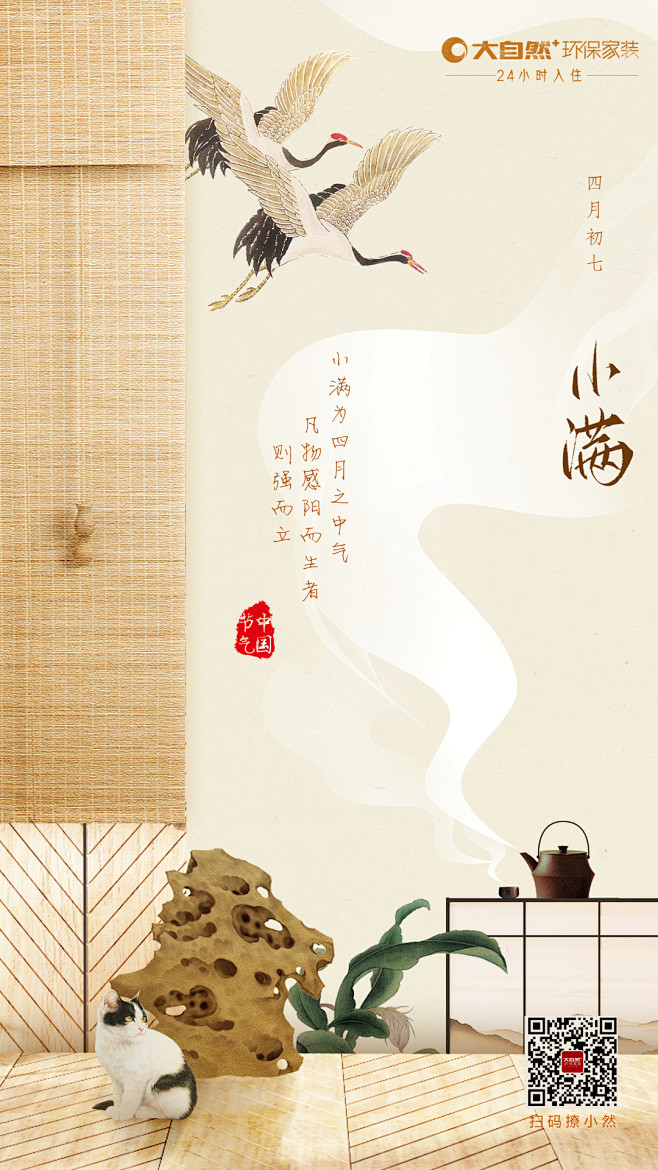 大自然+环保家装
24小时入住
四月初七
小满
小满为四月之中气
凡物感阳而生者
则强而立
中国
节气
大自然
扫码撩小然